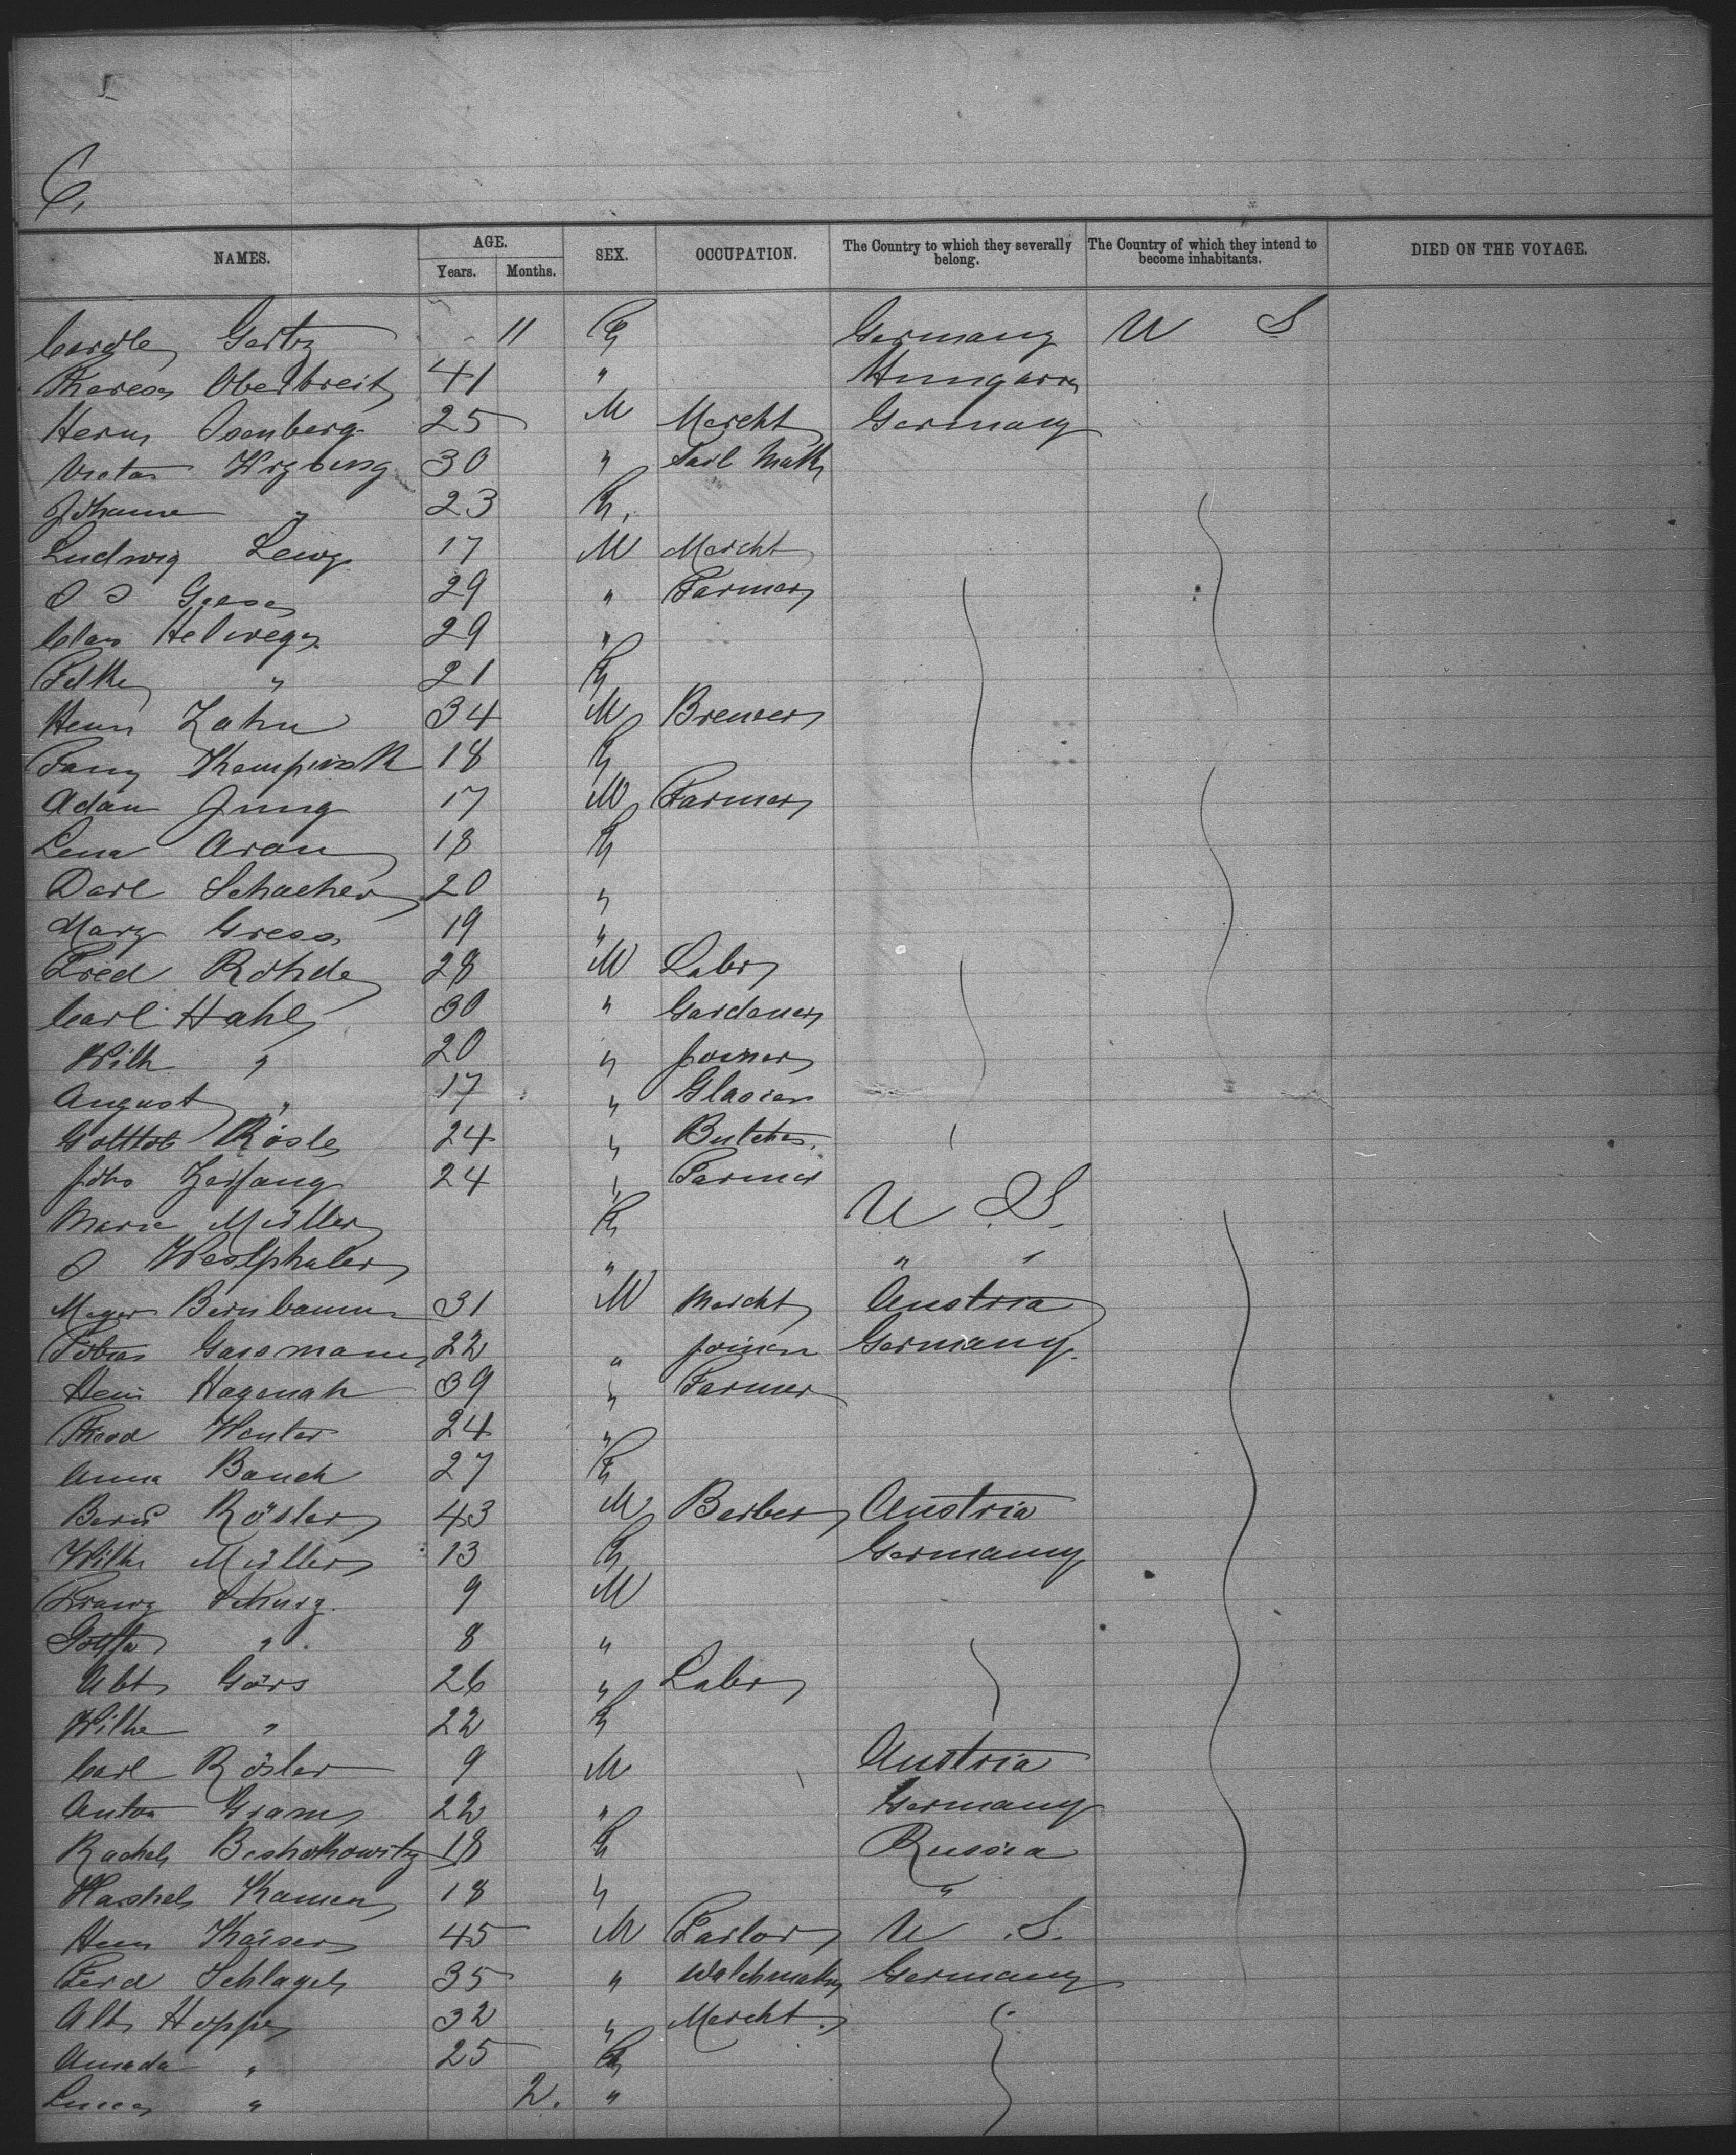 6.
NAMES. AGE. Years. Months. SEX. OCCUPATION. The Country to which they severally belong. The Country of which they intend to become inhabitants. DIED ON THE VOYAGE.
Gertz 11 F Germany U S
Theresa Oberbreit 41 " Hungary
Herm Isenberg 25 M Mercht Germany
Victor 30 " Sail Makr
Johanne " 23 F.
Ludwig Lewy 17 M Mercht
29 " Farmer
Claus Helwege 29 "
" 21 F
Henri Zahn 34 M Brewer
Fanny Kempinsk 18 F
Adam Jung 17 M Farmer
Lena Aron 18 F
Schacher 20 "
Mary Gress 19 "
Fred Rohde 28 M Labr
Carl Hahl 30 " Gardener
Wilh " 20 " Joiner
August " 17 " Glasier
Gottlob Rösle 24 " Butcher.
Johs Zeifang 24 " Farmer
Marie Müller F U.S.
Westphaler " " "
Meyer Birnbaum 31 M Mercht Austria
Tobias Gassmann 22 " Joiner Germany.
Heni Hagenah 39 " Farmer
Theod Winter 24 "
Anna Bauch 27 F
Rösler 43 M Barber Austria
Wilhe Müller 13 F Germany
Franz 9 M
" 8 "
Abt Görs 26 " Labr
Wilhe " 22 F
Carl Rösler 9 M Austria
Anton Gram 22 " Germany
Rachel 18 F Russia
Kamen 18 " "
Henr Kaiser 45 M U.S.
Ferd Schlagel 35 " Watchmakr Germany
Alb Hoppe 32 " Mercht.
Amada " 25 F
" 2. "